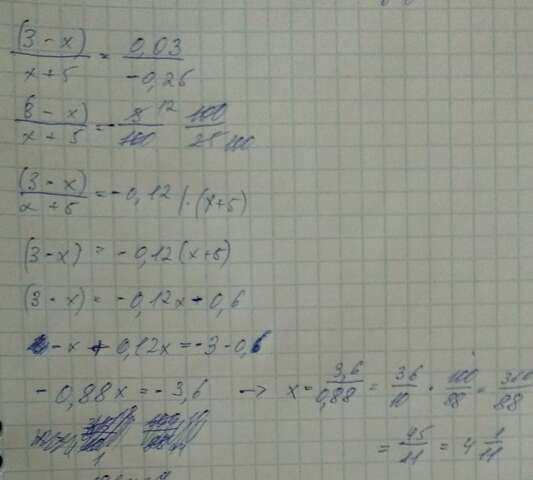 (3 - x) / x + 5 = 0,03 / -0,25
(3 - x) / x + 5 = - 12 / 100
(3 - x) / x + 5 = -0,12 | · (x+5)
(3-x) = -0,12(x+5)
(3 - x) = -0,12x - 0,6
-x + 0,12x = -3-0,6
-0,88x = -3,6 → x = 3,6 / 0,88 = 36 / 10 · 100 / 88 = 360 / 88
= 45 / 11 = 4 1/11